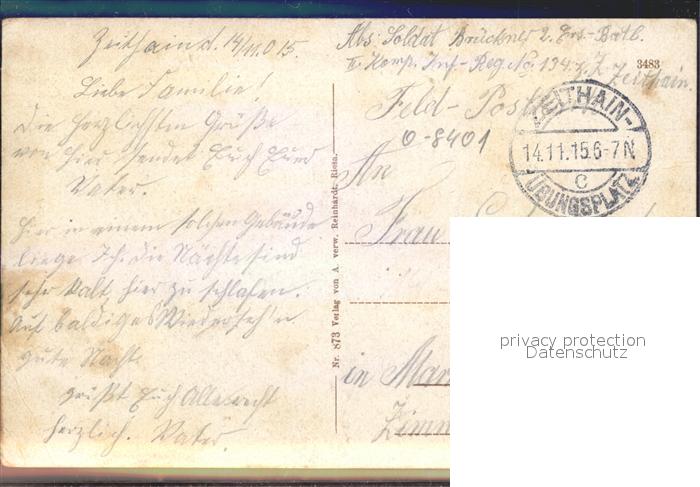 Zeithain d. 14/11.015.
Liebe Familie!
Die herzlichsten Grüße
von hier sendet Euch Euer
Vater.
Hier in einem solchen Gebäude
liege Ich. die Nächte sind
sehr kalt, hier zu schlafen.
Auf baldiges Wiederseh'n
gute Nacht
grüßt Euch Alle recht
herzlich. Vater.
Nr. 873 Verlag von A. verw. Reinhardt, Riesa.
Abs: Soldat Brückner 2. Ers-Batl.
II. Komp. Inf-Reg. No. 134. Zeithain.
3483
Feld-Post
0-8401
ZEITHAIN-
14.11.15.6-7N
C
ÜBUNGSPLATZ
An
Frau
in
privacy protection
Datenschutz